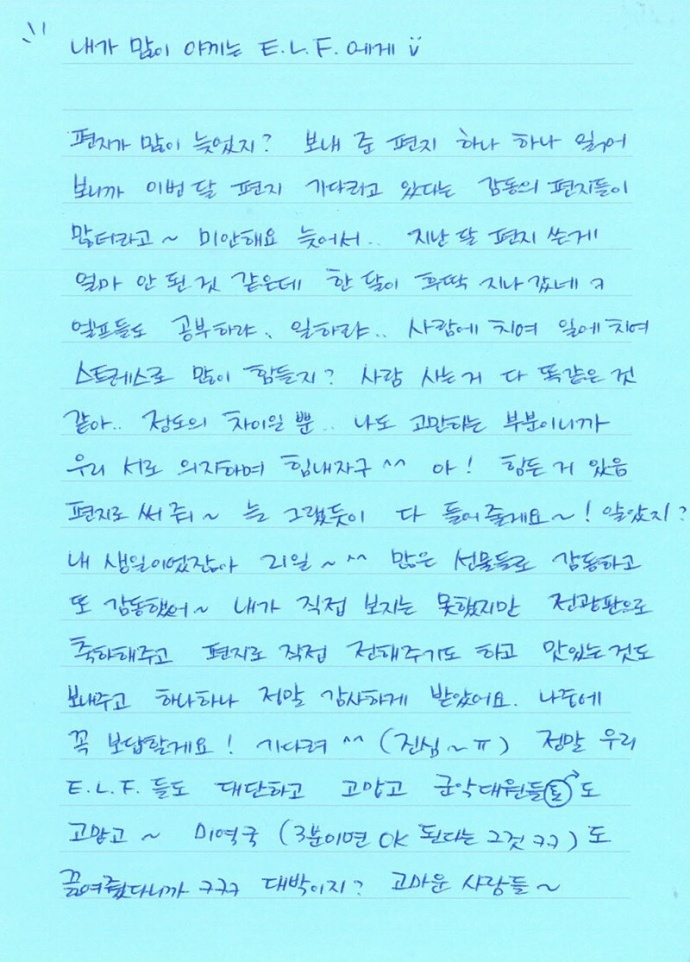 내가 많이 아끼는 E.L.F. 에게
편지가 많이 늦었지? 보내 준 편지 하나 하나 읽어
보니까 이번 달 편지 기다리고 있다는 감동의 편지들이
많더라고~ 미안해요 늦어서.. 지난 달 편지 쓴게
얼마 안 된 것 같은데 한 달이 후딱 지나갔네 ㅋ
엘프들도 공부하랴, 일하랴.. 사람에 치여 일에 치여
스트레스로 많이 힘들지? 사람 사는거 다 똑같은 것
같아.. 정도의 차이일 뿐.. 나도 고민하는 부분이니까
우리 서로 의지하며 힘내자구 ^^ 아! 힘든 거 있음
편지로 써 줘~ 늘 그랬듯이 다 들어줄게요~! 알았지?
내 생일이었잖아 21일~^^ 많은 선물들로 감동하고
또 감동했어~ 내가 직접 보지는 못했지만 전광판으로
축하해주고 편지로 직접 전해주기도 하고 맛있는것도
보내주고 하나하나 정말 감사하게 받았어요. 나중에
꼭 보답할게요! 기다려 ^^ (진심~ㅠ) 정말 우리
E.L.F. 들도 대단하고 고맙고 군악대원들도
고맙고~ 미역국 (3분이면 OK 된다는 그것 ㅋㅋ)도
끓여줬다니까 ㅋㅋㅋ 대박이지? 고마운 사람들~